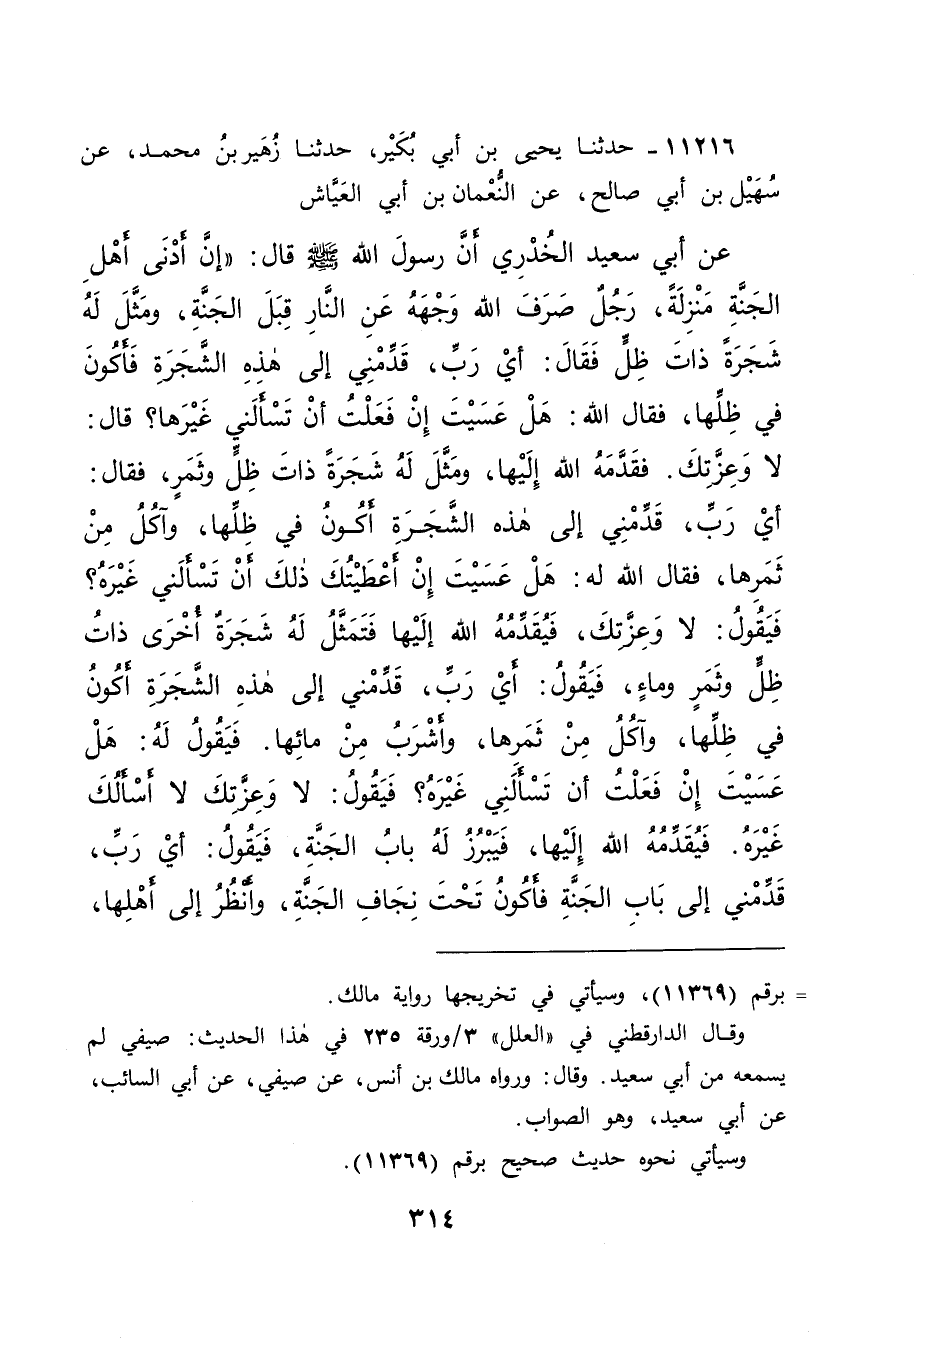 ١١٢١٦ ـ حدثنا يحيى بن أبي بُكَيْر، حدثنا زُهَير بنُ محمد، عن
سُهَيْل بن أبي صالح، عن النُّعْمان بن أبي العَيَّاش
عن أبي سعيد الخُدْري أَنَّ رسولَ الله ﷺ قال: «إنَّ أَدْنَى أَهْلِ
الجَنَّةِ مَنْزِلَةً، رَجُلٌ صَرَفَ الله وَجْهَهُ عَنِ النَّارِ قِبَلَ الجَنَّةِ، ومَثَّلَ لَهُ
شَجَرَةً ذاتَ ظِلٍّ فَقَالَ: أيْ رَبِّ، قَدِّمْنِي إلى هٰذِهِ الشَّجَرَةِ فَأَكُونَ
في ظِلِّها، فقال الله: هَلْ عَسَيْتَ إِنْ فَعَلْتُ أنْ تَسْأَلَني غَيْرَها؟ قال:
لا وَعِزَّتِكَ. فقَدَّمَهُ الله إِلَيْها، ومَثَّلَ لَهُ شَجَرَةً ذاتَ ظِلٍّ وثَمَرٍ، فقال:
أيْ رَبِّ، قَدِّمْنِي إلى هٰذه الشَّجَرَةِ أَكُونُ في ظِلِّها، وآكُلُ مِنْ
ثَمَرِها، فقال الله له: هَلْ عَسَيْتَ إِنْ أَعْطَيْتُكَ ذٰلكَ أَنْ تَسْأَلَني غَيْرَهُ؟
فَيَقُولُ: لا وَعِزَّتِكَ، فَيُقَدِّمُهُ الله إلَيْها فَتَمَثَّلُ لَهُ شَجَرَةٌ أُخْرَى ذاتُ
ظِلٍّ وثَمَرٍ وماءٍ، فَيَقُولُ: أَيْ رَبِّ، قَدِّمْني إلى هٰذِهِ الشَّجَرَةِ أَكُونُ
في ظِلِّها، وآكُلُ مِنْ ثَمَرِها، وأَشْرَبُ مِنْ مائِها. فَيَقُولُ لَهُ: هَلْ
عَسَيْتَ إِنْ فَعَلْتُ أن تَسْأَلَنِي غَيْرَهُ؟ فَيَقُولُ: لا وَعِزَّتِكَ لا أَسْأَلُكَ
غَيْرَهُ. فَيُقَدِّمُهُ الله إِلَيْها، فَيَبْرُزُ لَهُ بابُ الجَنَّةِ، فَيَقُولُ: أيْ رَبِّ،
قَدِّمْني إلى بَابِ الجَنَّةِ فأَكُونُ تَحْتَ نِجَافِ الجَنَّةِ، وأَنْظُرُ إلى أَهْلِها،
= برقم (١١٣٦٩)، وسيأتي في تخريجها رواية مالك.
وقال الدارقطني في «العلل» ٣/ورقة ٢٣٥ في هٰذا الحديث: صيفي لم
يسمعه من أبي سعيد. وقال: ورواه مالك بن أنس، عن صيفي، عن أبي السائب،
عن أبي سعيد، وهو الصواب.
وسيأتي نحوه حديث صحيح برقم (١١٣٦٩).
٣١٤